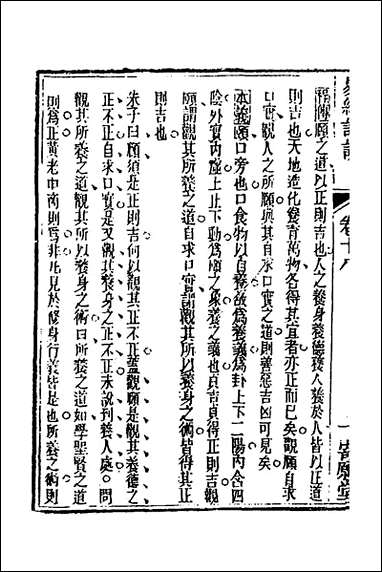 程傳頤之道以正則吉也人之養身養德養人養於人皆以正道
則吉也天地造化養育萬物各得其宜者亦正而已矣觀頤自求
口實觀人之所頤與其自求口實之道則善惡吉凶可見矣
本義頤口旁也口食物以自養故爲養義爲卦上下二陽內含四
陰外實內虛上止下動爲頤之象養之義也貞吉者占得正則吉觀
頤謂觀其所養之道自求口實謂觀其所以養身之術皆得其正
則吉也
朱子曰頤須是正則吉何以觀其正不正蓋觀頤是觀其養德之
正不正自求口實是又觀其養身之正不正未說到養人處○問
觀其所養之道觀其所以養身之術曰所養之道如學聖賢之道
則爲正黃老申商則爲非凡見於修身行義皆是也所養之術則
卷十八
一